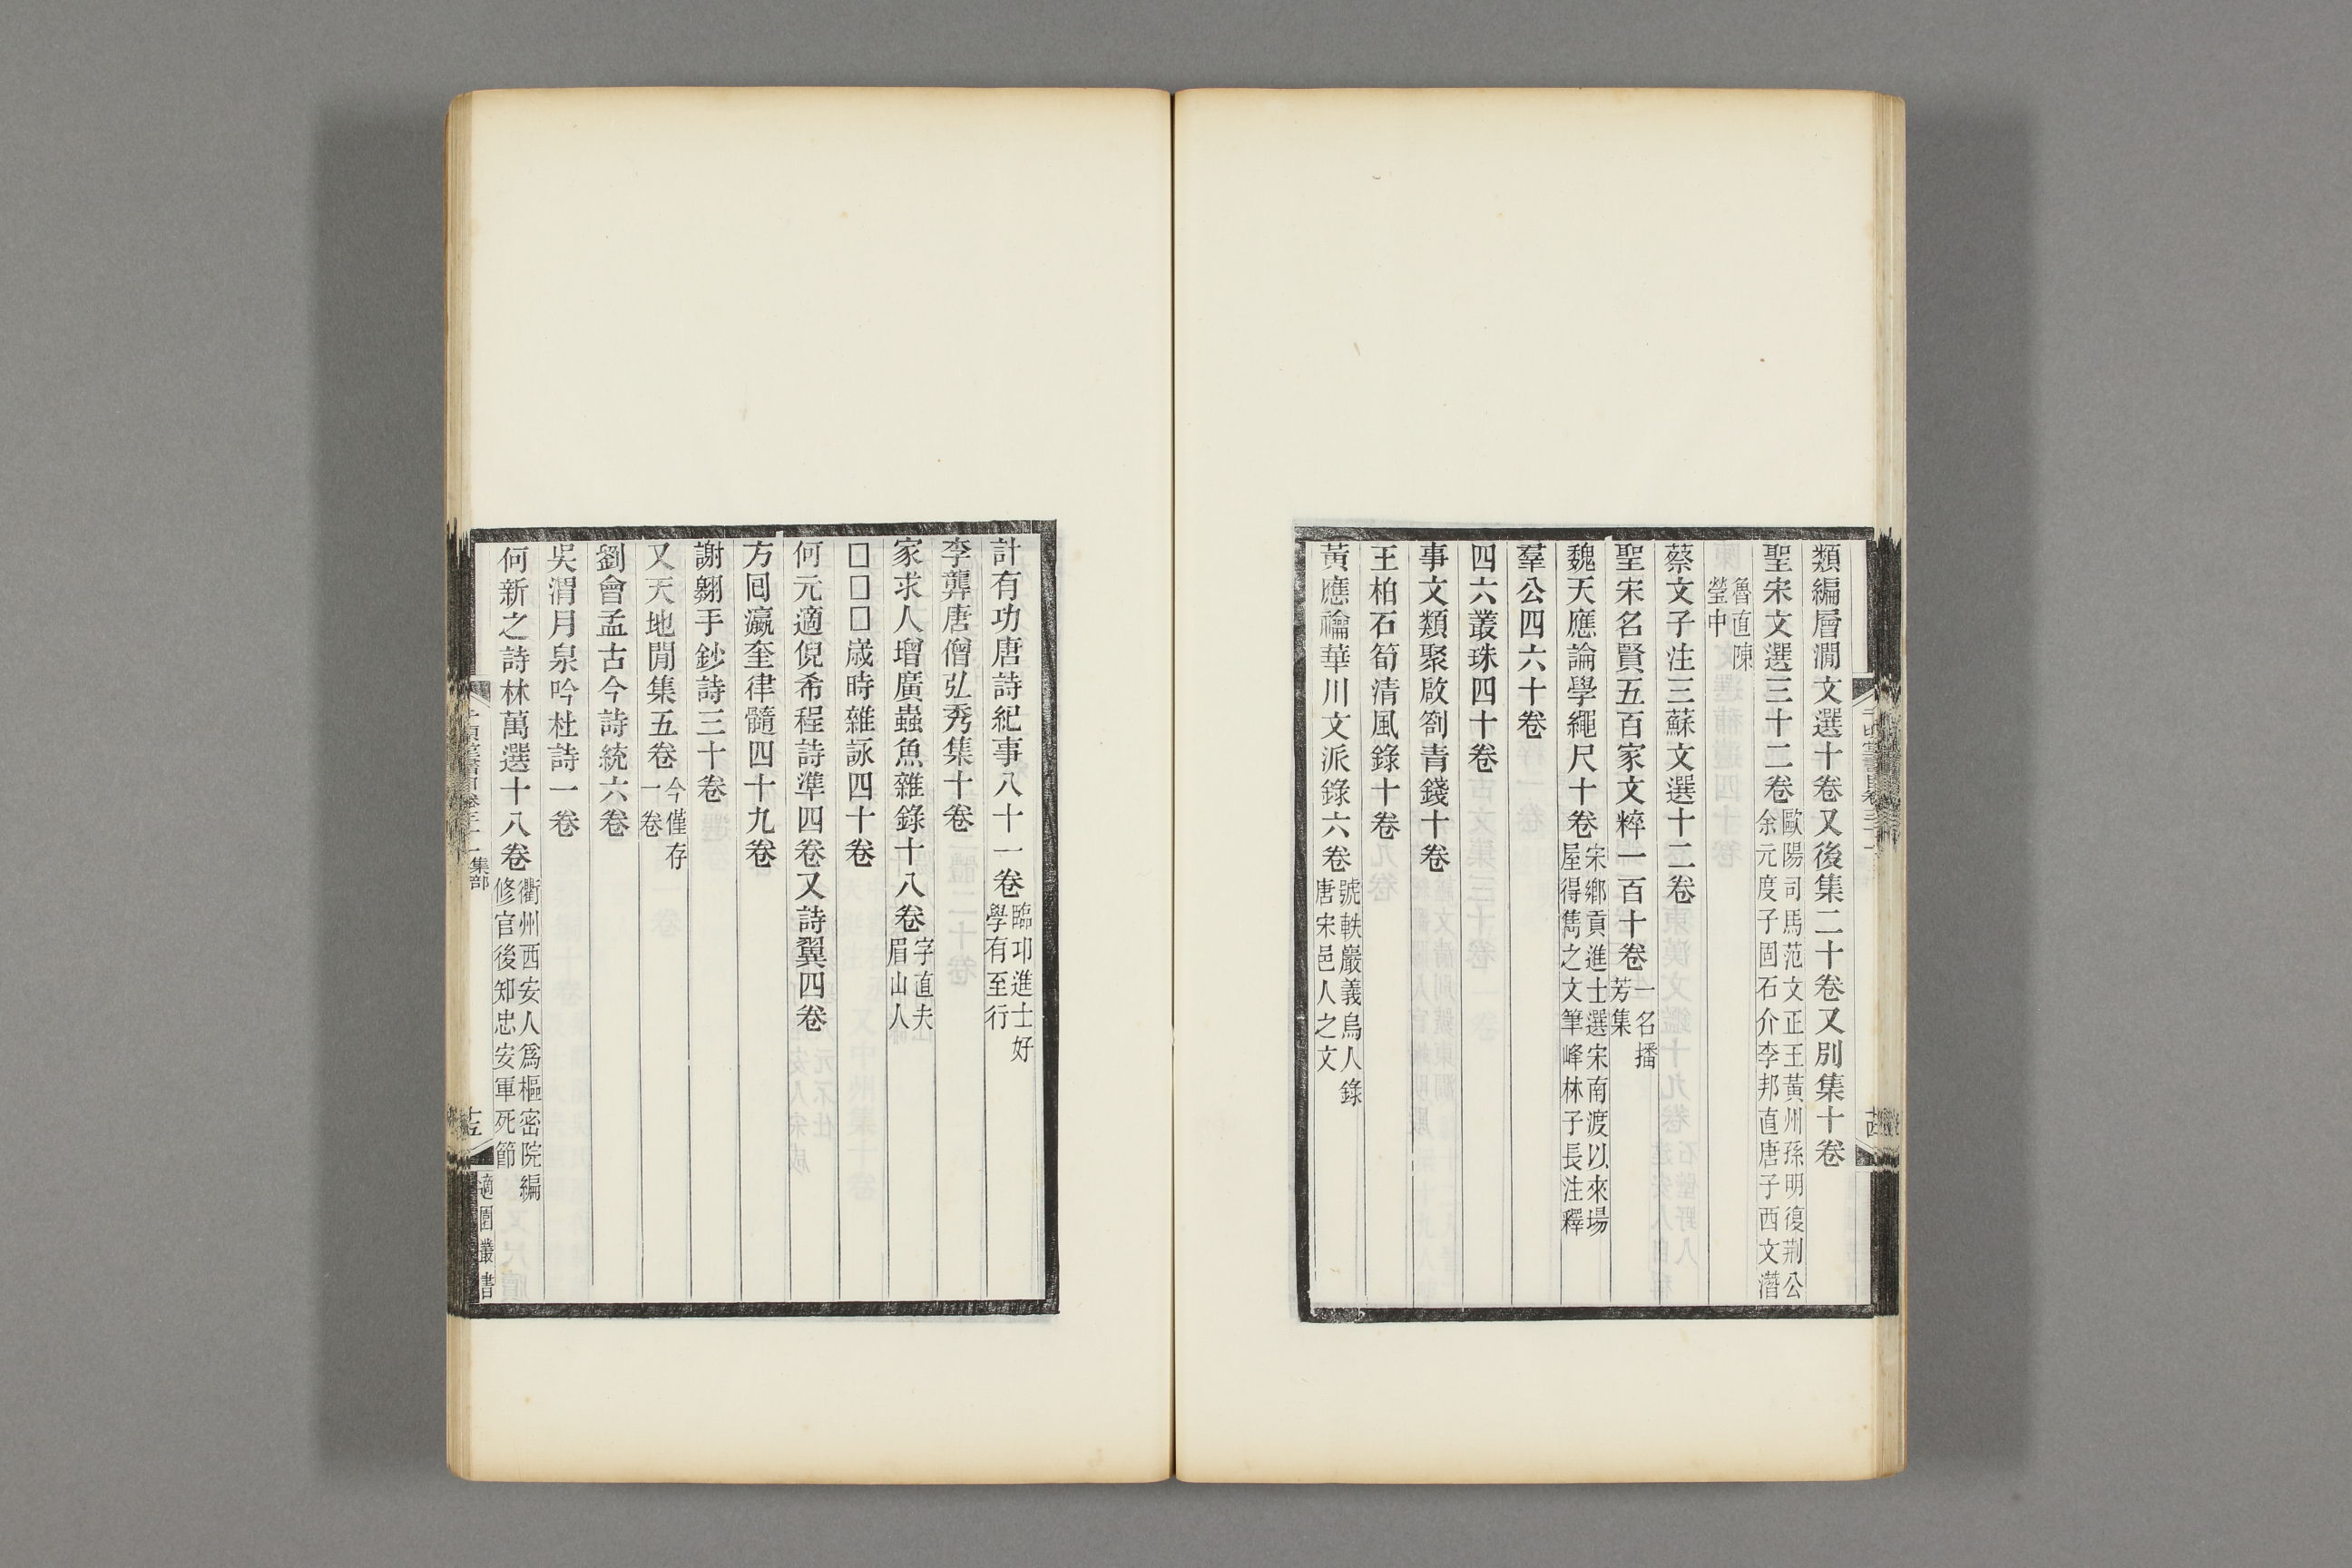 類編層瀾文選十卷又後集二十卷又別集十卷
聖宋文選三十二卷歐陽司馬范文正王黃州孫明復荆公
余元度子固石介李邦直唐子西文潛
魯直陳
瑩中
蔡文子注三蘇文選十二卷
聖宋名賢五百家文粹一百十卷一名播
芳集
魏天應論學繩尺十卷宋鄉貢進士選宋南渡以來場
屋得雋之文筆峰林子長注釋
羣公四六十卷
四六叢珠四十卷
事文類聚啟劄青錢十卷
王柏石筍清風錄十卷
黃應龢華川文派錄六卷號軼巖義烏人錄
唐宋邑人之文
計有功唐詩紀事八十一卷臨邛進士好
學有至行
李龏唐僧弘秀集十卷
家求人增廣蟲魚雜錄十八卷字直夫
眉山人
□□□歲時雜詠四十卷
何元適倪希程詩準四卷又詩翼四卷
方回瀛奎律髓四十九卷
謝翱手鈔詩三十卷
又天地閒集五卷今僅存
一卷
劉會孟古今詩統六卷
吳渭月泉吟社詩一卷
何新之詩林萬選十八卷衢州西安人爲樞密院編
修官後知忠安軍死節
集部
十五
適園叢書